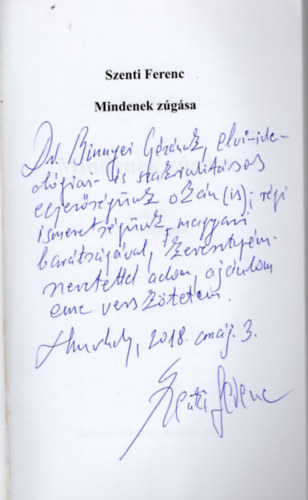 Szenti Ferenc
Mindenek zúgása
Dr. Binnyei Gézának, elvi-ide-
ológiai- és szakralitásos
egyerőségünk okán (is); régi
ismeretségünk, magyari
barátságával, s keresztyéni
szeretettel adom, ajánlom
eme verskötetem.
2018. máj. 3.
Szenti Ferenc